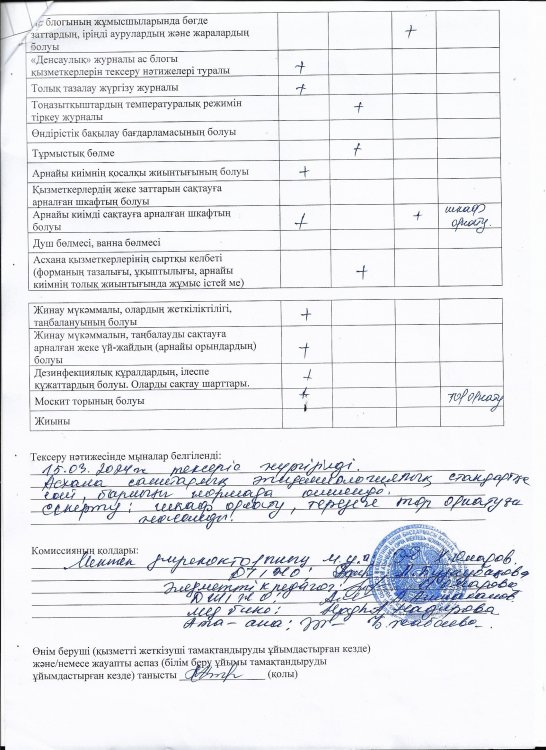 ас блогының жұмысшыларында бөгде
заттардың, іріңді аурулардың және жаралардың
болуы
+
«Денсаулық» журналы ас блогы
қызметкерлерін тексеру нәтижелері туралы
+
Толық тазалау жүргізу журналы
+
Тоңазытқыштардың температуралық режимін
тіркеу журналы
+
Өндірістік бақылау бағдарламасының болуы
Тұрмыстық бөлме
+
Арнайы киімнің қосалқы жиынтығының болуы
+
Қызметкерлердің жеке заттарын сақтауға
арналған шкафтың болуы
Арнайы киімді сақтауға арналған шкафтың
болуы
+ +
шкаф
орнату.
Душ бөлмесі, ванна бөлмесі
Асхана қызметкерлерінің сыртқы келбеті
(форманың тазалығы, ұқыптылығы, арнайы
киімнің толық жиынтығында жұмыс істей ме)
+
Жинау мүкәммалы, олардың жеткіліктілігі,
таңбалануының болуы
+
Жинау мүкәммалын, таңбалауды сақтауға
арналған жеке үй-жайдың (арнайы орындардың)
болуы
+
Дезинфекциялық құралдардың, ілеспе
құжаттардың болуы. Оларды сақтау шарттары.
+
Москит торының болуы
+
тор орнату
Жиыны
Тексеру нәтижесінде мыналар белгіленді:
15.03.2024ж тексеріс жүргізілді.
Асхана санитарлық эпидемиологиялық стандартқа
сай, барлығы нормада
Ескерту: шкаф орнату, терезеге тор орнатуға
Комиссияның қолдары:
Мектеп директорының м.у.а Х.Омаров.
Әлеуметтік педагог:
медбике: Надирова
Ата-ана:
Өнім беруші (қызметті жеткізуші тамақтандыруды ұйымдастырған кезде)
және/немесе жауапты аспаз (білім беру ұйымы тамақтандыруды
ұйымдастырған кезде) танысты (қолы)